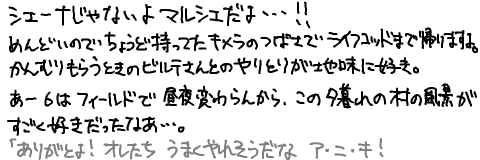 シエーナじゃないよ マルシェだよ…!!
めんどいのでちょうど持ってたキメラのつばさでライフコッドまで帰りますね。
かんむりもらうときのビルテさんとのやりとりが地味に好き。
あー6はフィールドで昼夜変わらんから、この夕暮れの村の風景が
すごく好きだったなあ…。
「ありがとよ! オレたち うまくやれそうだな ア・ニ・キ!